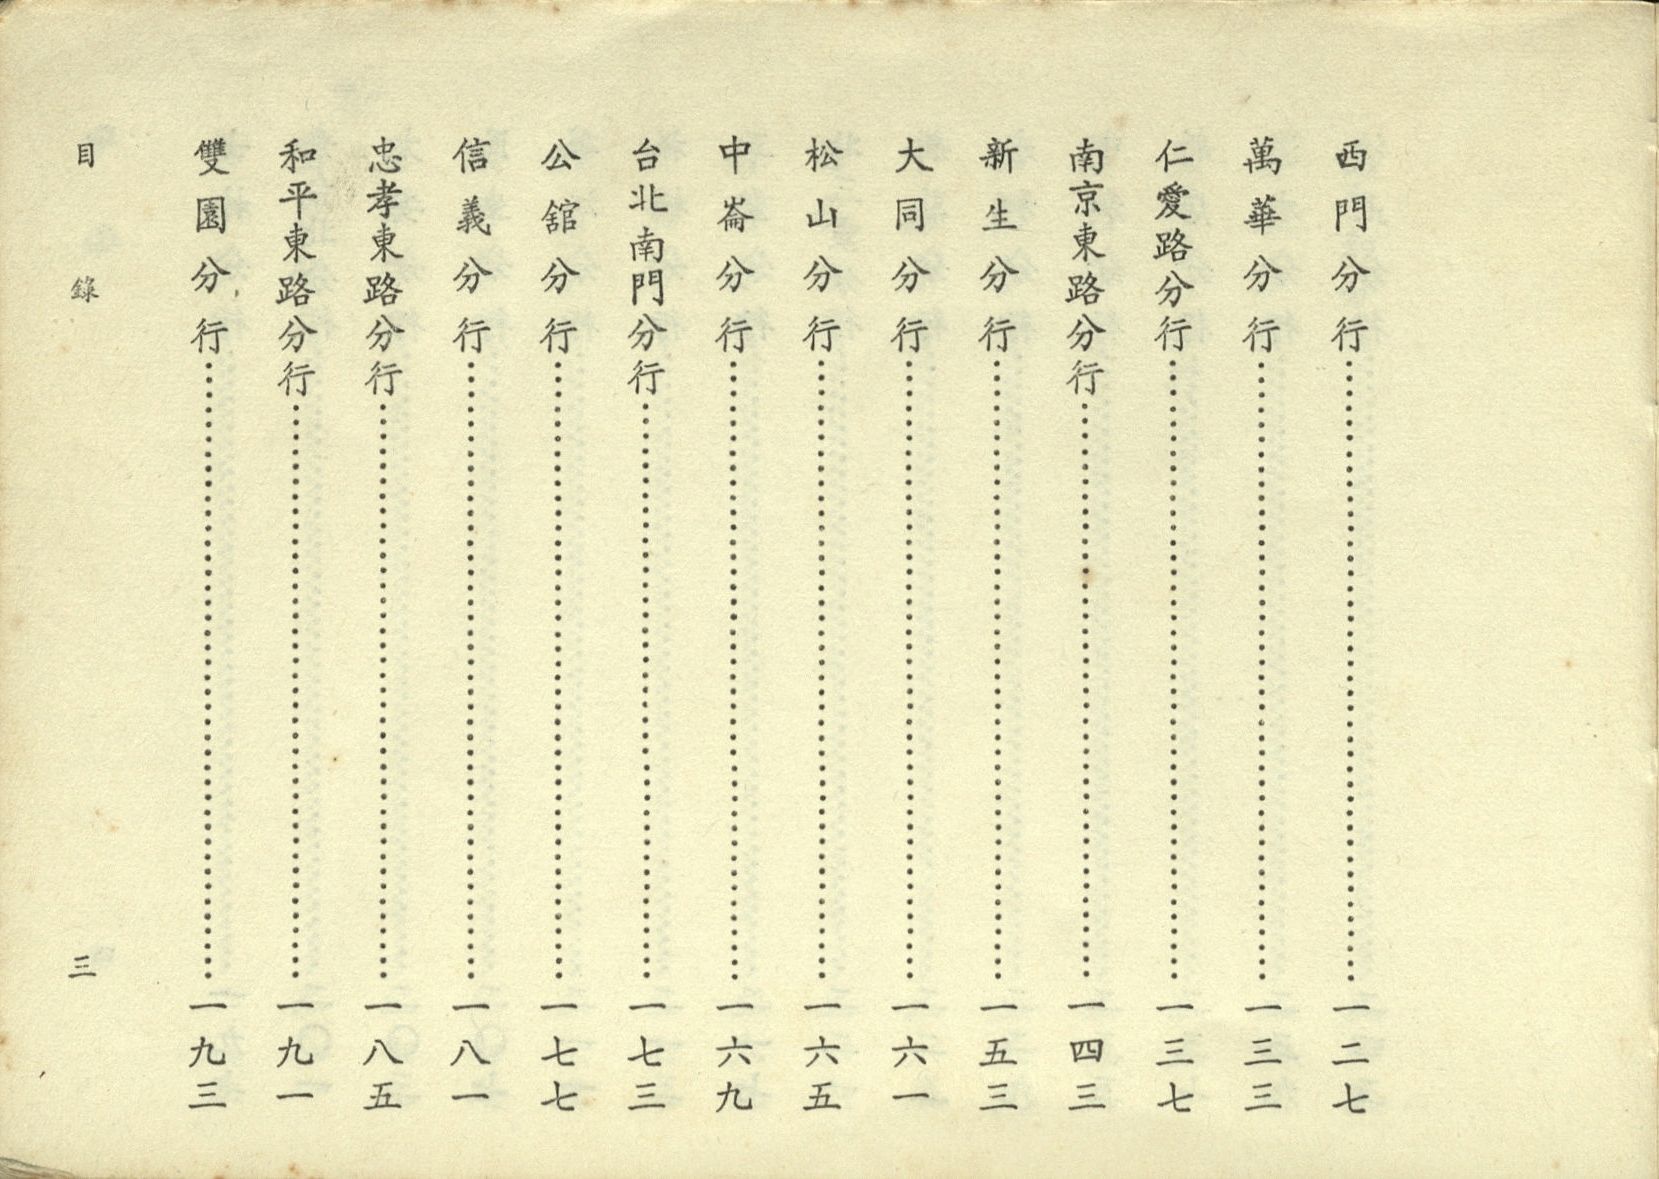 西門分行……一二七
萬華分行……一三三
仁愛路分行……一三七
南京東路分行……一四三
新生分行……一五三
大同分行……一六一
松山分行……一六五
中崙分行……一六九
台北南門分行……一七三
公舘分行……一七七
信義分行……一八一
忠孝東路分行……一八五
和平東路分行……一九一
雙園分行……一九三
目錄 三